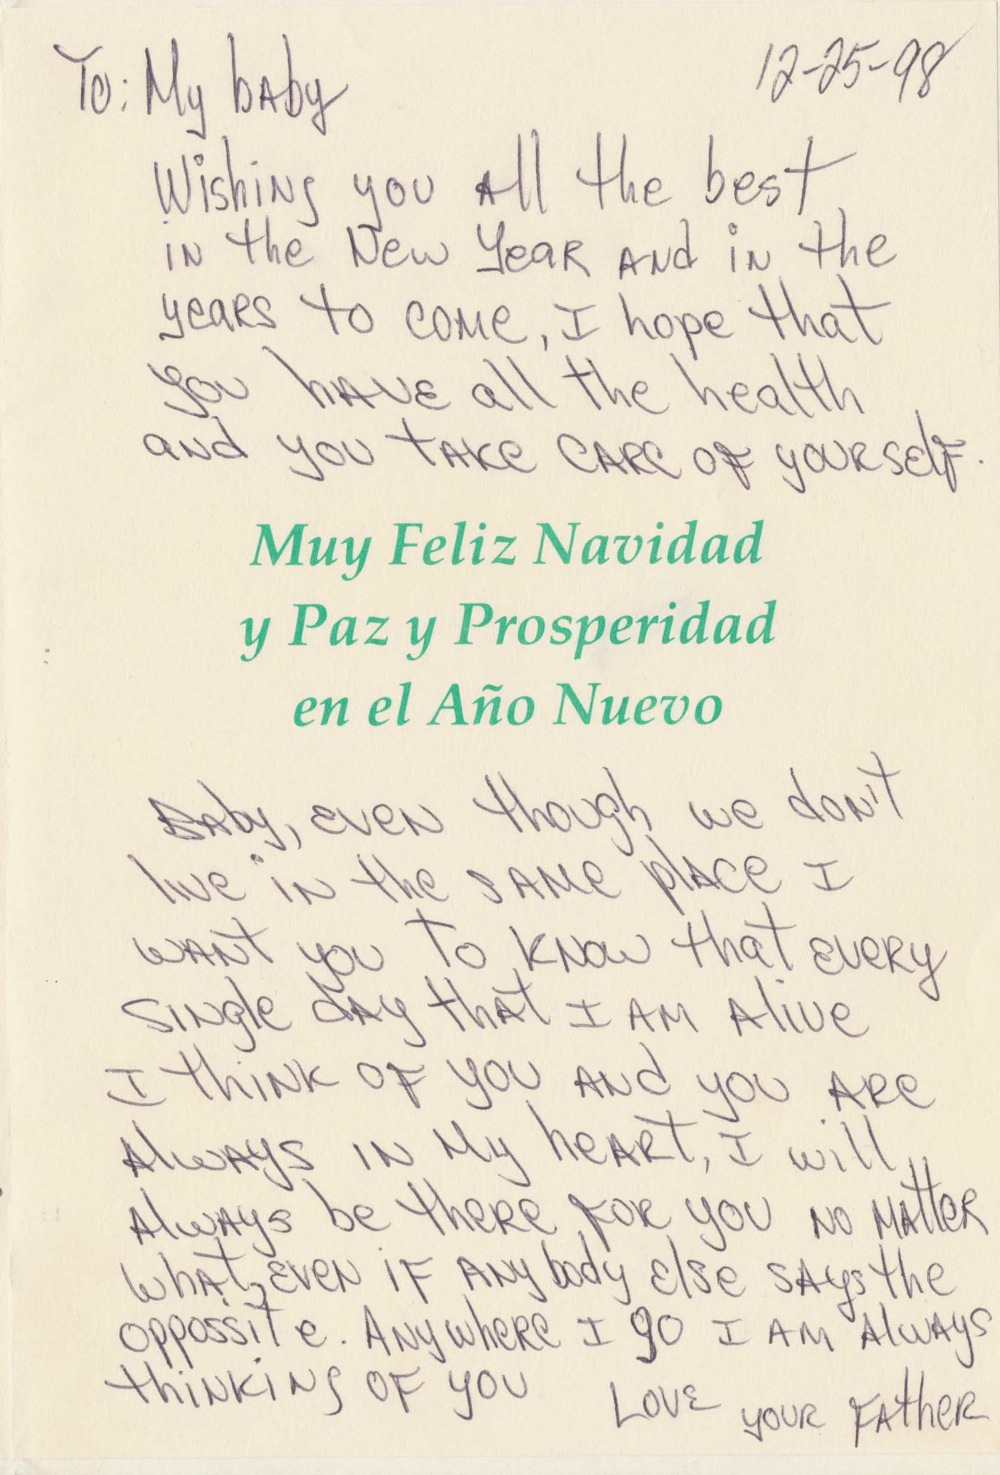 To: My baby 12-25-98
Wishing you all the best
in the New Year and in the
years to come, I hope that
you have all the health
and you take care of yourself.
Muy Feliz Navidad
y Paz y Prosperidad
en el Año Nuevo
Baby, even though we don't
live in the same place I
want you to know that every
single day that I am alive
I think of you and you are
always in my heart, I will
always be there for you no matter
what, even if anybody else says the
oppossite. Anywhere I go I am always
thinking of you Love your Father